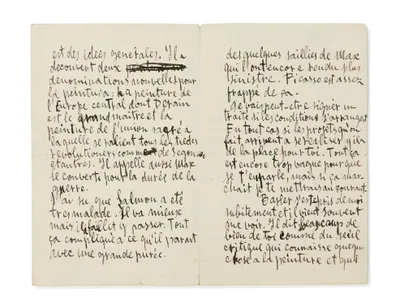 est des idées générales. Il a
découvert deux
dénominations nouvelles pour
la peinture: la peinture de
l'Europe central dont Derain
est le grand maître et la
peinture de l'union sacrée à
laquelle se rallient tous les tièdes
revolutionnaires comme
étaires. Il appelle aussi Max
le converti pour la durée de la
guerre.
J'ai su que Salmon a été
très malade. Il va mieux
mais il fallit y passer. Tout
ça complique à ce qu'il parait
avec une grande purée.
des quelques saillies de Max
qui l'ont encore rendu plus
sinistre. Picasso est assez
frappé de ça.
Je vais peut-etre signer un
traité si les conditions s'arrangent
En tout cas si les projets qu'on
fait arrivent à se réaliser il y aura
de la place pour toi. Tout ça
est encore trop vague pour que
je t'en parle, mais si ça mar-
chait je te mettrais au courant.
Basler s'est épris de moi
subitement et il vient souvent
me voir. Il dit beaucoup de
bien de toi comme du seul
critique qui connaisse quelque
chose à la peinture et qui